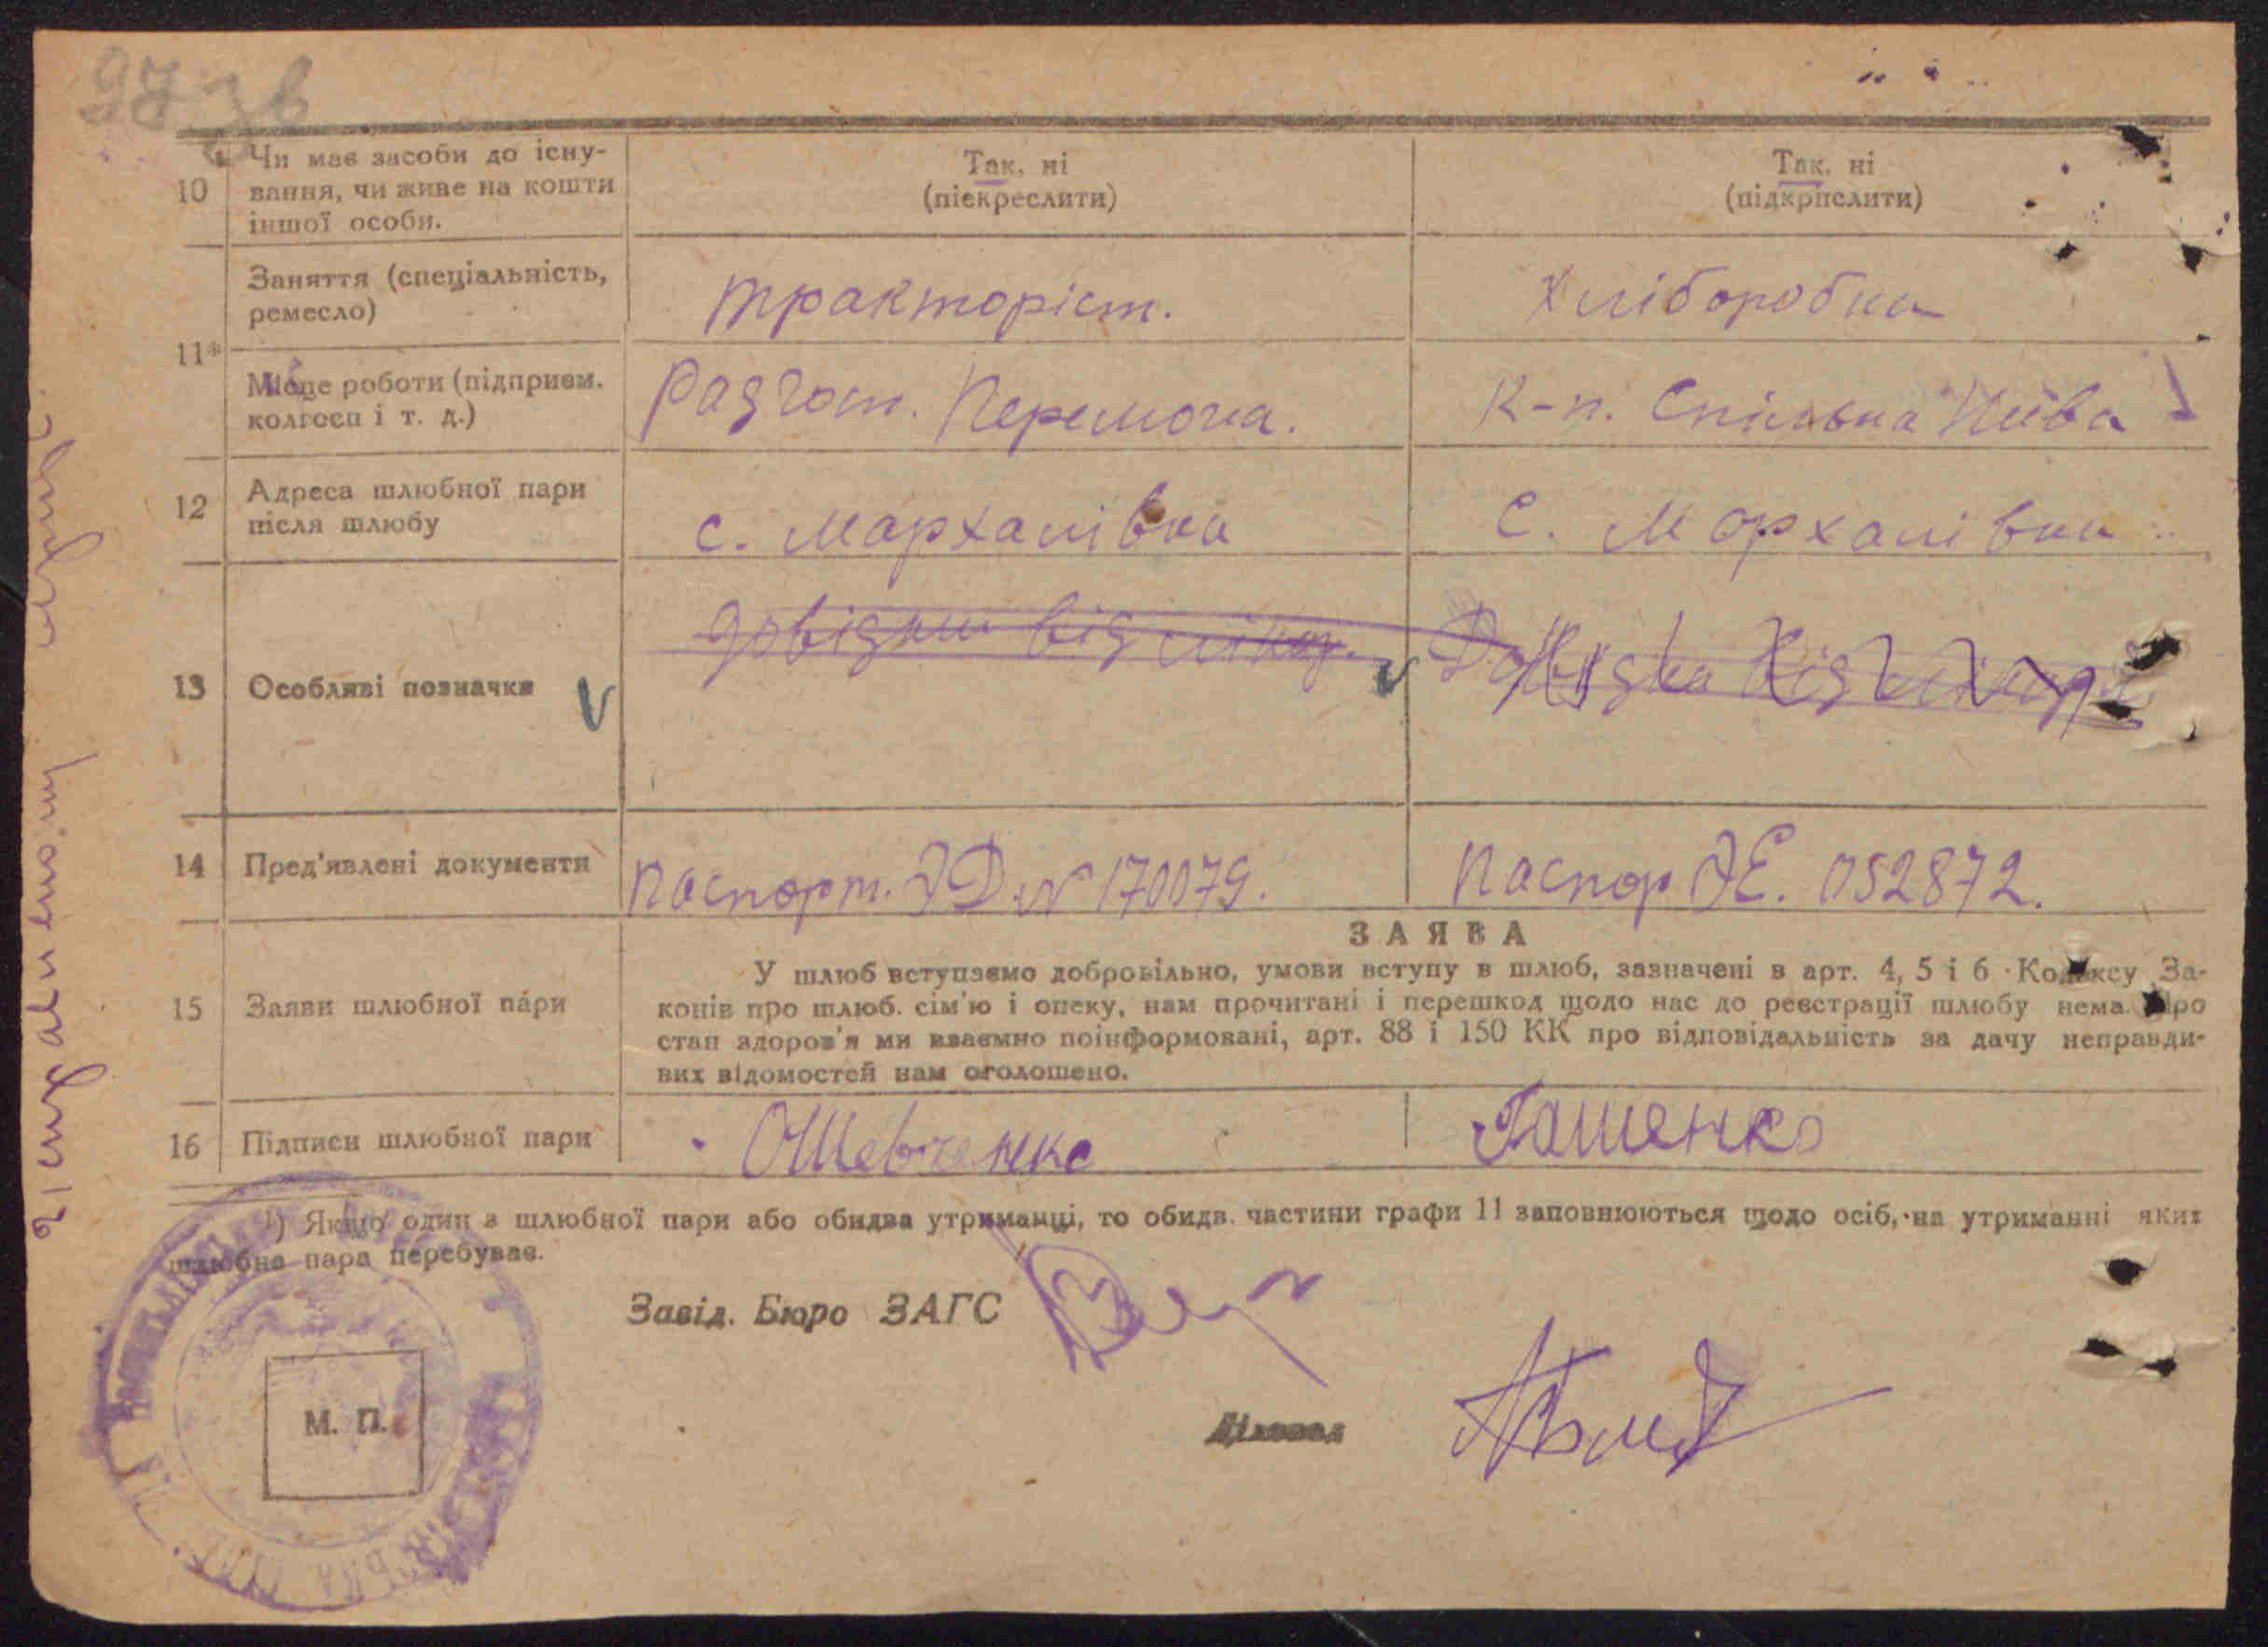 97 зв
10
Чи має засоби до існу-
вання, чи живе на кошти
іншої особи.
Так, ні
(піекреслити)
Так, ні
(підкрпслити)
11*
Заняття (спеціальність,
ремесло)
тракторіст.
Хліборобка
Місце роботи (підприєм.
колгосп і т. д.)
Радгост. Перемога.
К-п. Спільна Нива
12
Адреса шлюбної пари
після шлюбу
с. Мархалівка
С. Мархалівка
13
Особливі позначки
довідки від лікар.
Довідка від лікаря
14
Пред'явлені документи
Паспорт. ЭД. № 170079.
Паспор ЭЕ. 052872.
15
Заяви шлюбної пари
ЗАЯВА
У шлюб вступаємо добровільно, умови вступу в шлюб, зазначені в арт. 4, 5 і 6 Кодексу За-
конів про шлюб. сім'ю і опеку, нам прочитані і перешкод щодо нас до реєстрації шлюбу нема. Про
стан здоров'я ми взаємно поінформовані, арт. 88 і 150 КК про відповідальність за дачу неправди-
вих відомостей нам оголошено.
16
Підписи шлюбної пари
ОШевченко
Гашенко
¹) Якщо один з шлюбної пари або обидва утриманці, то обидв. частини графи 11 заповнюються щодо осіб, на утриманні яких
шлюбна пара перебуває.
Завід. Бюро ЗАГС
Діловод
М. П.